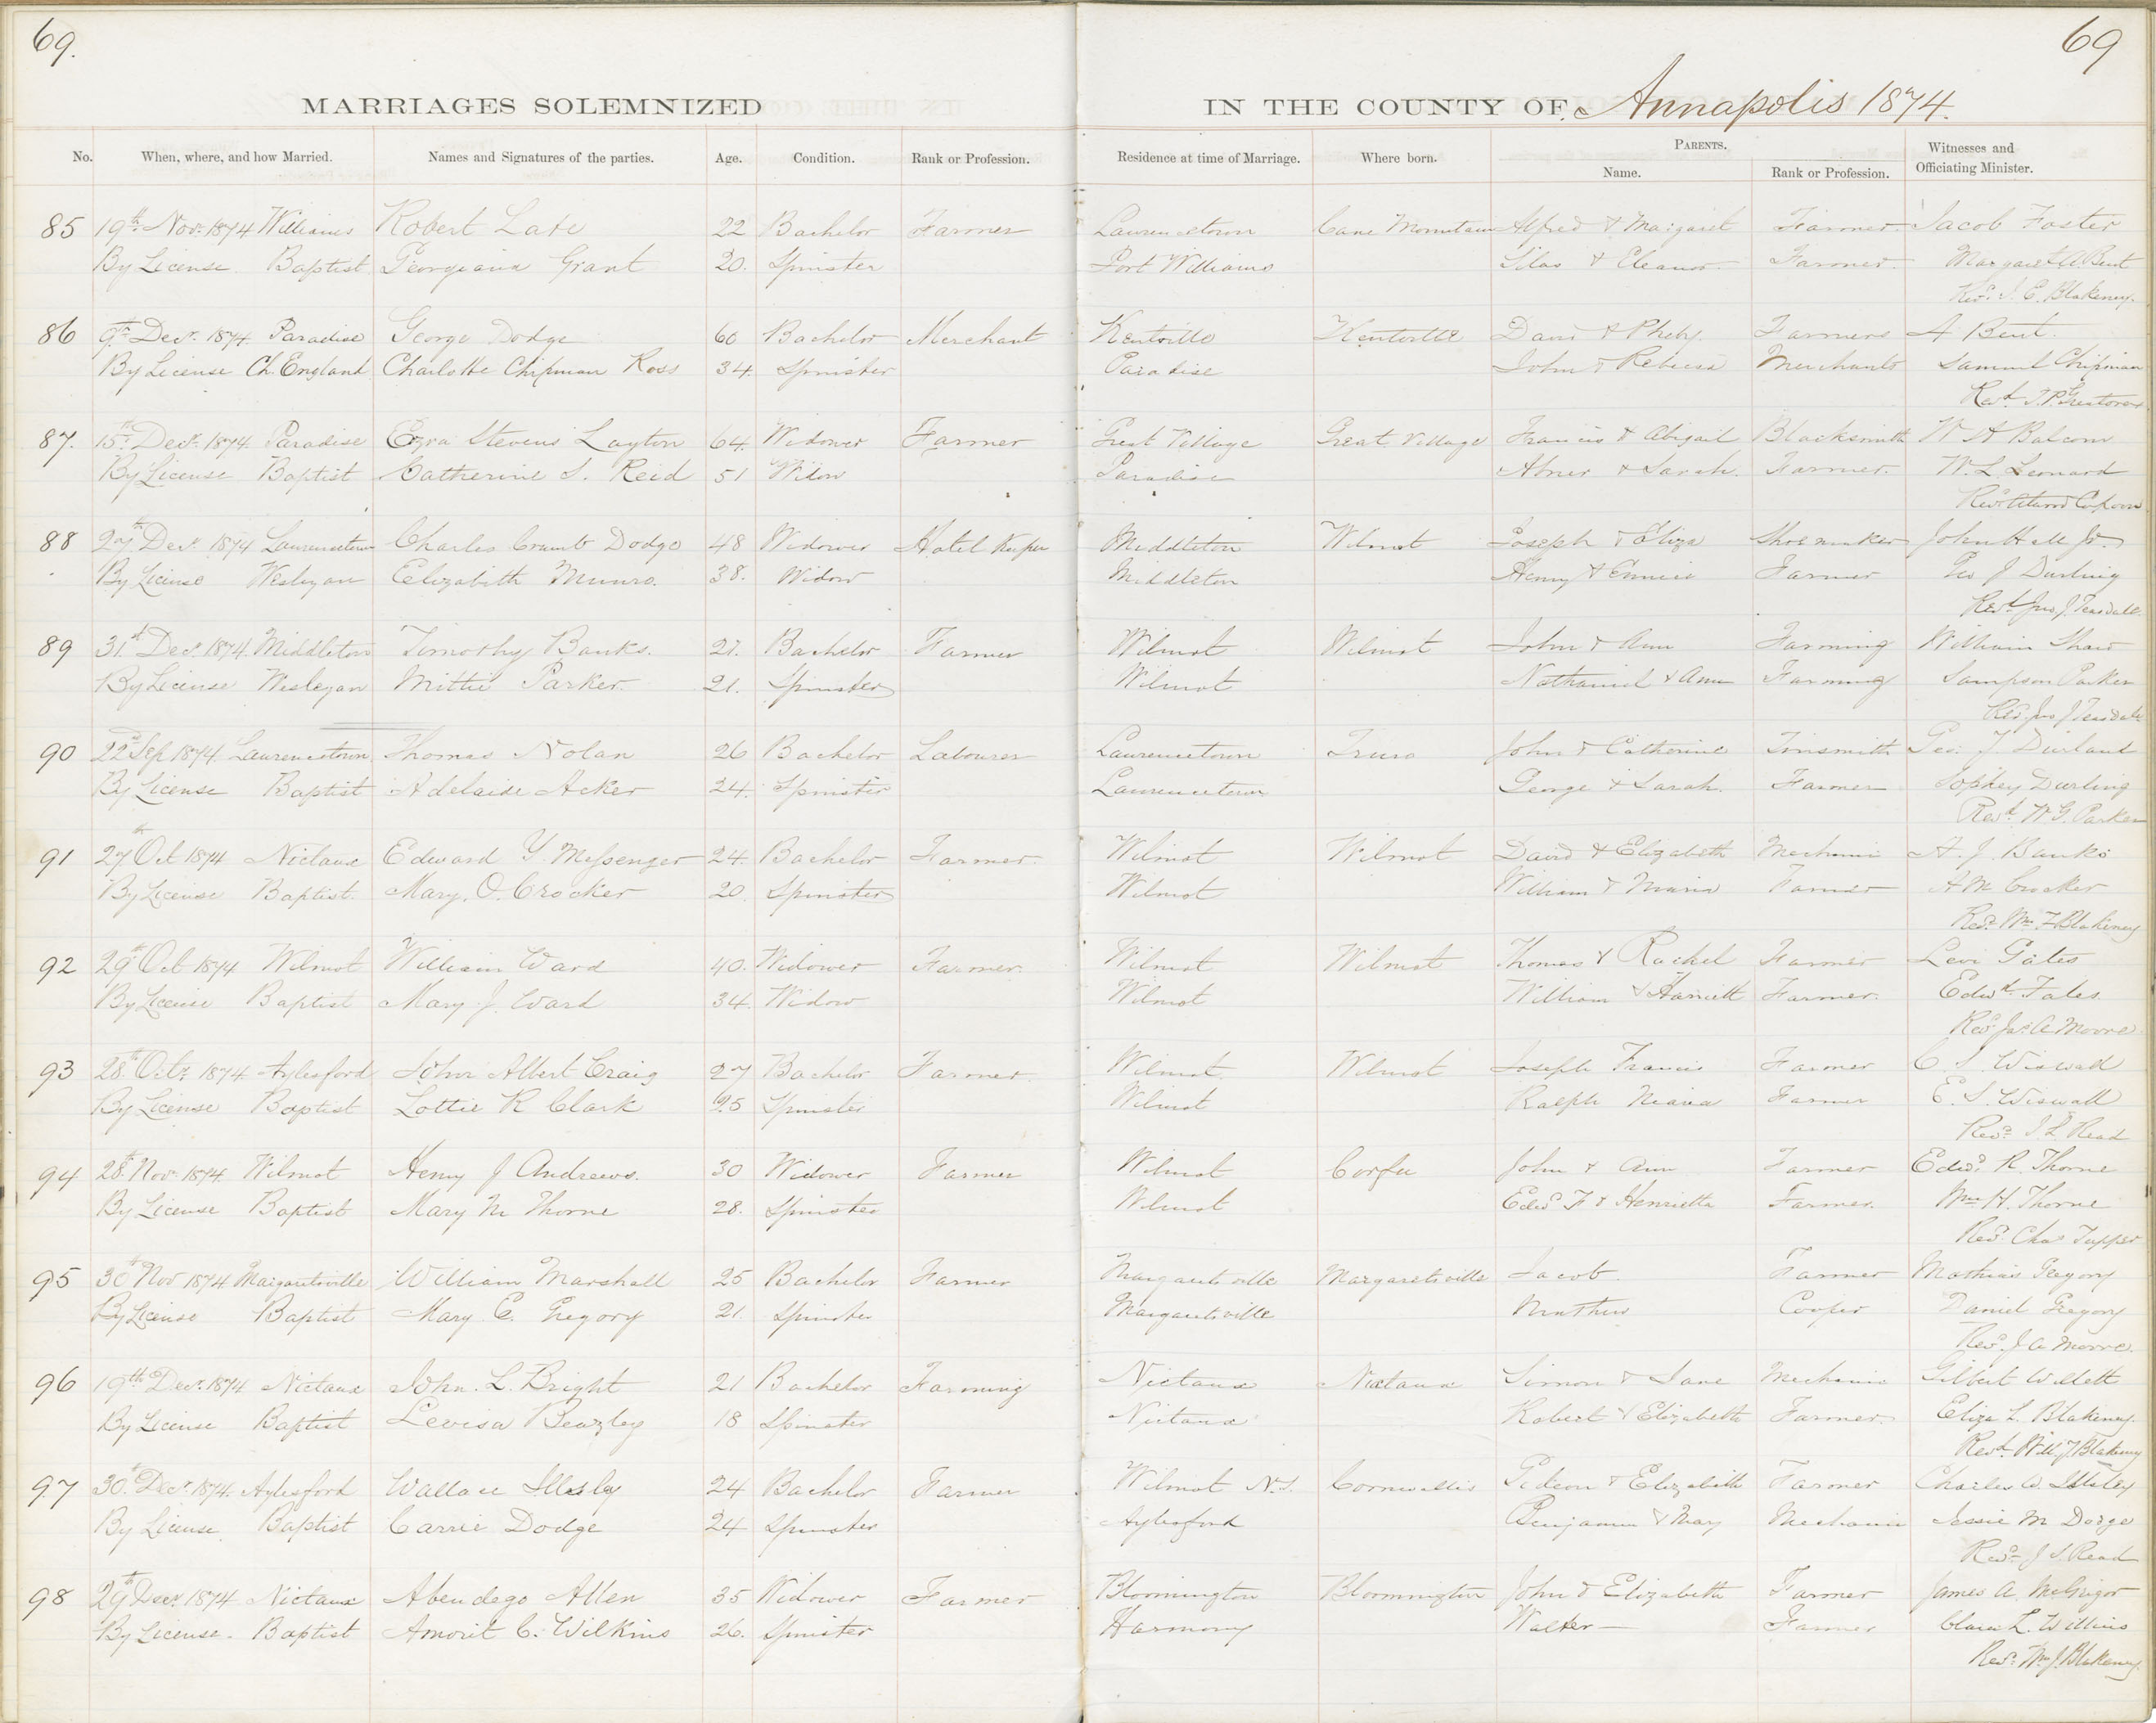 69.
69
MARRIAGES SOLEMNIZED IN THE COUNTY OF Annapolis 1874.
No. When, where, and how Married. Names and Signatures of the parties. Age. Condition. Rank or Profession. Residence at time of Marriage. Where born. PARENTS. Witnesses and
Name. Rank or Profession. Officiating Minister.
85 19th Nov. 1874 Williams Robert Late 22 Bachelor Farmer Laurencetown Mountain Alfred & Margaret Farmer Jacob Foster
By License Baptist Georgiana Grant 20. Spinster Port Williams Silas & Eleanor Farmer. Margaret A. Bent
Revd. I. E. Blakeney.
86 9th Decr. 1874 Paradise George Dodge 60 Bachelor Merchant Kentville Kentville David & Pheby Farmers A Bent.
By License Ch. England Charlotte Chipman Ross 34. Spinster Paradise John & Rebecca Merchants Samuel Chipman
Revd.
87. 15th Decr. 1874 Paradise Ezra Stevens Layton 64. Widower Farmer Great Village Great Village Francis & Abigail Blacksmith W H Balcom
By License Baptist Catherine S. Reid 51 Widow Paradise Abner & Sarah. Farmer. W. L Leonard
Revd.
88 27th Decr. 1874 Laurencetown Charles Crumb Dodge 48 Widower Hotel Keeper Middleton Wilmot Joseph & Eliza Shoemaker John Hall Jr.
By License Wesleyan Elizabeth Munro. 38. Widow Middleton Henry & Farmer Geo J Durling
Revd. Jno. J. Teasdale
89 31st Decr. 1874. Middleton Timothy Banks. 21. Bachelor Farmer Wilmot Wilmot John & Ann Farming William Shaw
By License Wesleyan Mittie Parker. 21. Spinster Wilmot Nathaniel & Ann Farming Sampson Parker
Revd. Jno J Teasdale
90 22d Sep 1874. Laurencetown Thomas Nolan 26 Bachelor Labourer Laurencetown Truro John & Catherine Tinsmith Geo. J Durland
By License Baptist Adelaide Acker 24. Spinster Laurencetown George & Sarah. Farmer Sophey Durling
Revd. W G. Parker
91 27th Oct 1874 Nictaux Edward Y. Messenger 24. Bachelor Farmer. Wilmot Wilmot David & Elizabeth Mechanic A. J. Banks
By License Baptist. Mary. O. Crocker 20. Spinster Wilmot William & Maria Farmer A M Crocker
Revd. Wm. J Blakeney
92 29th Oct 1874 Wilmot William Ward 40. Widower Farmer. Wilmot Wilmot Thomas & Rachel Farmer Levi Gates
By License Baptist Mary J. Ward 34. Widow Wilmot William & Harriett Farmer. Edwd. Fales.
Revd. Jas. A Moore
93 28th Octr. 1874 Aylesford John Albert Craig 27 Bachelor Farmer. Wilmot. Wilmot Joseph Francis Farmer C. S. Wiswall
By License Baptist Lottie R Clark 25 Spinster Wilmot Ralph Maria Farmer E. S. Wiswall
Revd. J. L Read
94 28th Nov. 1874. Wilmot Henry J Andrews. 30 Widower Farmer Wilmot Corfu John & Ann Farmer Edwd. R. Thorne
By License Baptist Mary M Thorne 28. Spinster Wilmot Edwd F & Henrietta Farmer. Wm H. Thorne
Revd. Chas Tupper
95 30th Nov 1874. Margaretsville William Marshall 25 Bachelor Farmer Margaretsville Margaretsville Jacob. Farmer Mathias Gregory
By License Baptist Mary E. Gregory 21. Spinster Margaretsville Cooper Daniel Gregory
Revd. J A Moore.
96 19th Decr. 1874 Nictaux John. L. Bright 21 Bachelor Farming Nictaux Nictaux Simon & Jane Mechanic Gilbert Willett
By License Baptist Levisa Beazley 18 Spinster Nictaux Robert & Elizabeth Farmer. Eliza L. Blakeney.
Revd. Will J Blakeney
97 30th Decr. 1874. Aylesford Wallace Illesley 24 Bachelor Farmer Wilmot N.S. Cornwallis Gideon & Elizabeth Farmer Charles W. Illsley
By License Baptist Carrie Dodge 24 Spinster Aylesford Benjamin & May Mechanic Jessie M Dodge
Revd. J L Read
98 29th Decr. 1874 Nictaux Abendego Allen 35 Widower Farmer Bloomington Bloomington John & Elizabeth Farmer James A. McGrigor
By License. Baptist Amorit C. Wilkins 26. Spinster Harmony Walter — Farmer Clara L. Wilkins
Revd. Wm. J. Blakeney.